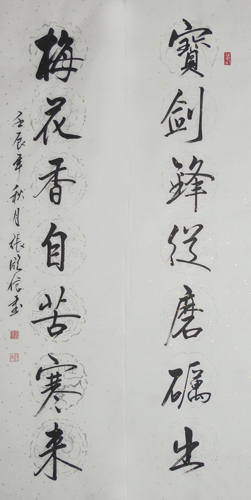 寶劍鋒從磨礪出
梅花香自苦寒来
壬辰年秋月張